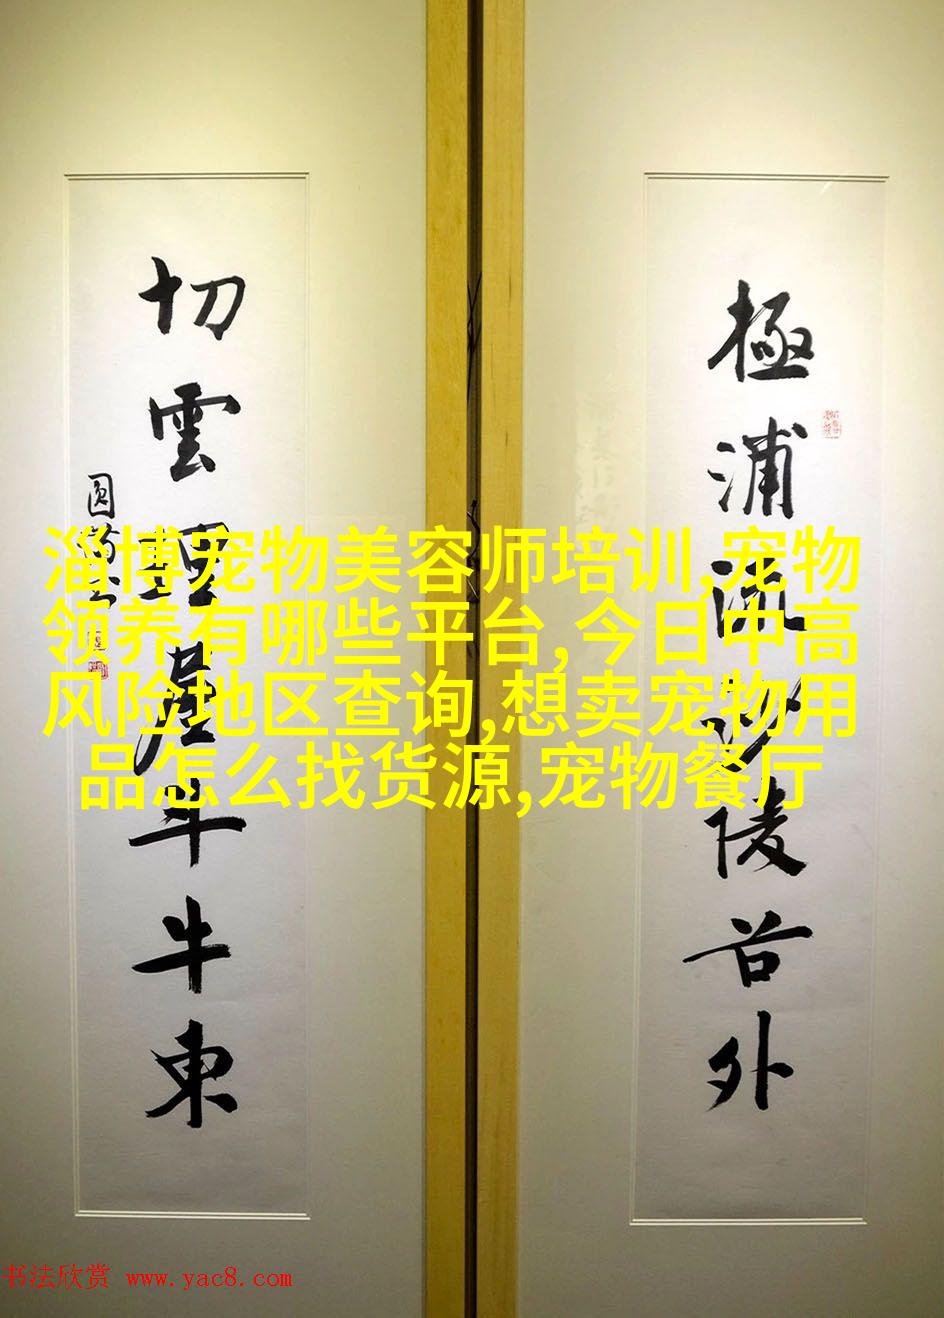 極浦流沙陵谷外
切雲斗牛東
淄博宠物美容师培训,宠物
领养有哪些平台,今日中高
风险地区查询,想卖宠物用
品怎么找货源,宠物餐厅
书法欣赏 www.yac8.com